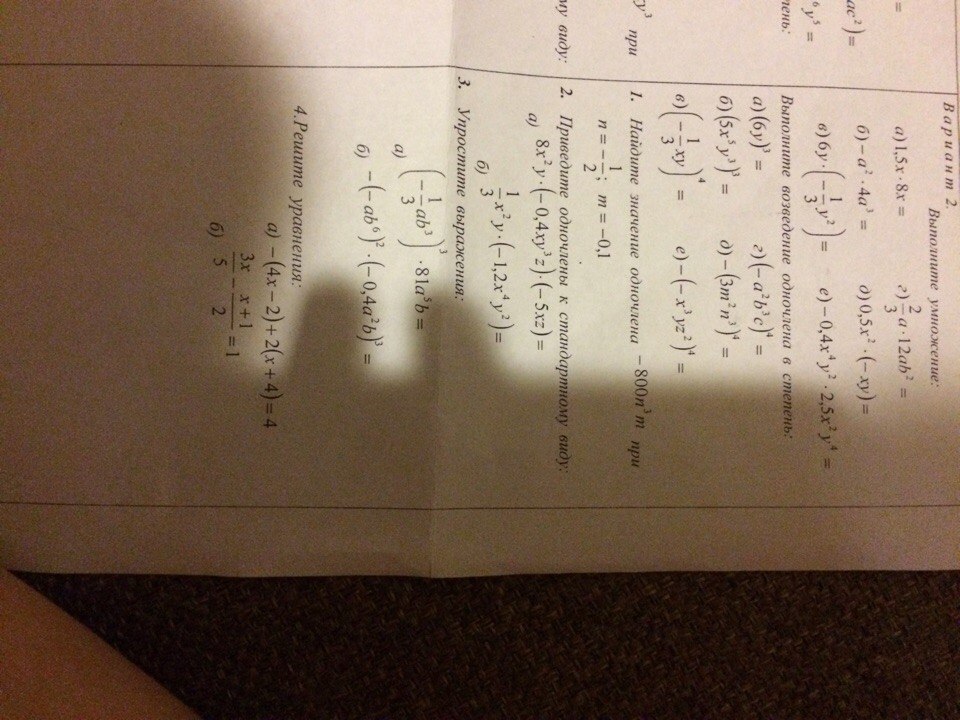 =
ac²)=
⁶y⁵ =
пень:
y³ при
му виду:
Вариант 2.
Выполните умножение:
а) 1,5x · 8x =    г) 2/3 a · 12ab² =
б) − a² · 4a³ =    д) 0,5x² · (−xy) =
в) 6y · (−1/3 y²) =    е) −0,4x⁴y² · 2,5x²y⁴ =
Выполните возведение одночлена в степень:
а) (6y)³ =    г) (−a²b³c)⁴ =
б) (5x⁵y³)³ =    д) −(3m²n³)⁴ =
в) (−1/3 xy)⁴ =    е) −(−x³yz²)⁴ =
1. Найдите значение одночлена −800n³m при
n = −1/2; m = −0,1
2. Приведите одночлены к стандартному виду:
а) 8x²y · (−0,4xy³z) · (−5xz) =
б) 1/3 x²y · (−1,2x⁴y²) =
3. Упростите выражения:
а) (−1/3 ab³)³ · 81a⁵b =
б) −(−ab⁶)² · (−0,4a²b)³ =
4.Решите уравнения:
а) −(4x − 2) + 2(x + 4) = 4
б) 3x/5 − (x+1)/2 = 1